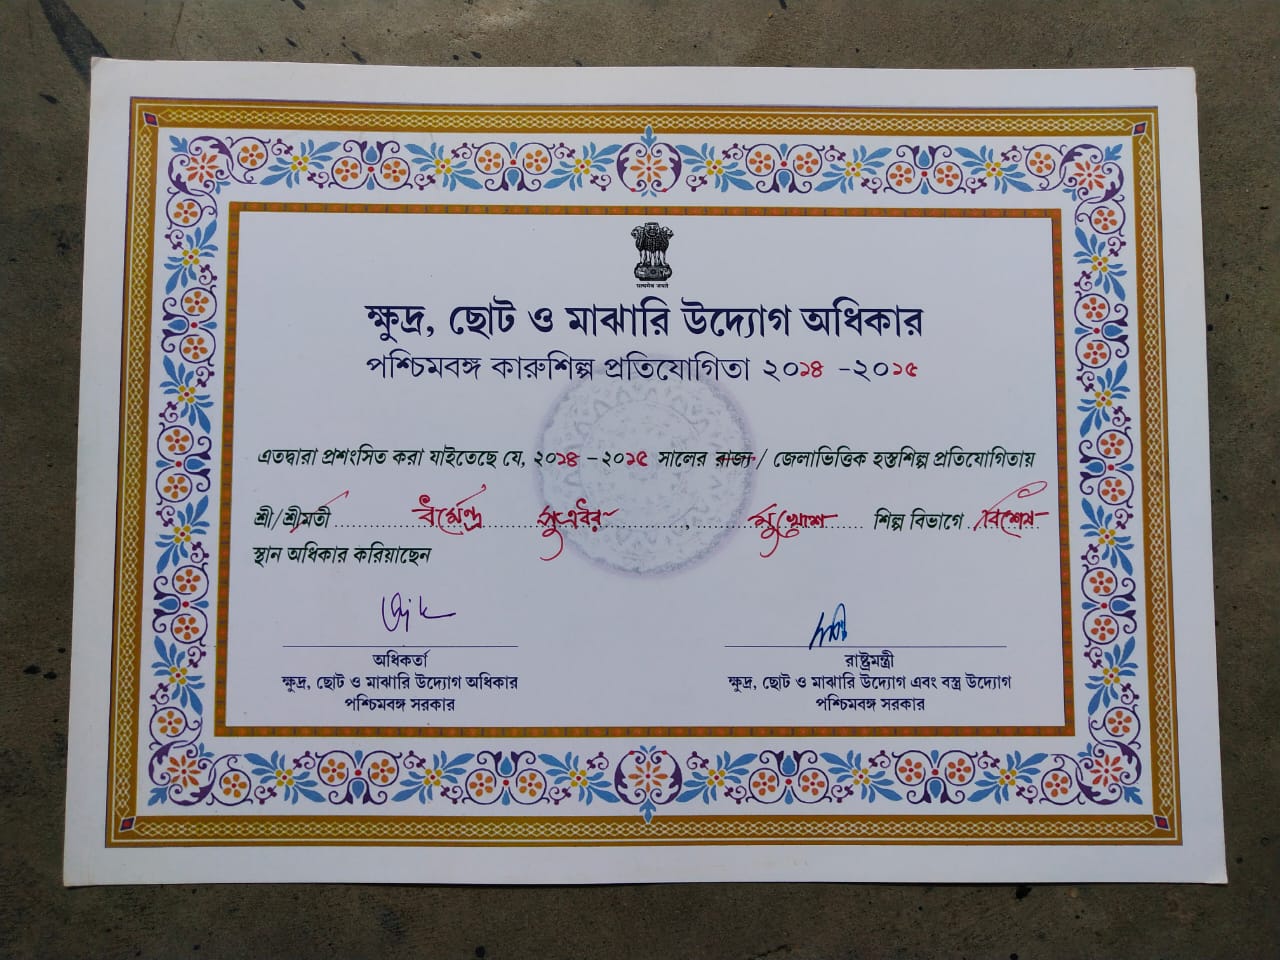 सत्यमेव जयते
ক্ষুদ্র, ছোট ও মাঝারি উদ্যোগ অধিকার
পশ্চিমবঙ্গ কারুশিল্প প্রতিযোগিতা ২০১৪ -২০১৫
এতদ্বারা প্রশংসিত করা যাইতেছে যে, ২০১৪ -২০১৫ সালের রাজ্য / জেলাভিত্তিক হস্তশিল্প প্রতিযোগিতায়
শ্রী/শ্রীমতী ধর্মেন্দ্র সুত্রধর , মুখোশ শিল্প বিভাগে বিশেষ
স্থান অধিকার করিয়াছেন
অধিকর্তা
ক্ষুদ্র, ছোট ও মাঝারি উদ্যোগ অধিকার
পশ্চিমবঙ্গ সরকার
রাষ্ট্রমন্ত্রী
ক্ষুদ্র, ছোট ও মাঝারি উদ্যোগ এবং বস্ত্র উদ্যোগ
পশ্চিমবঙ্গ সরকার